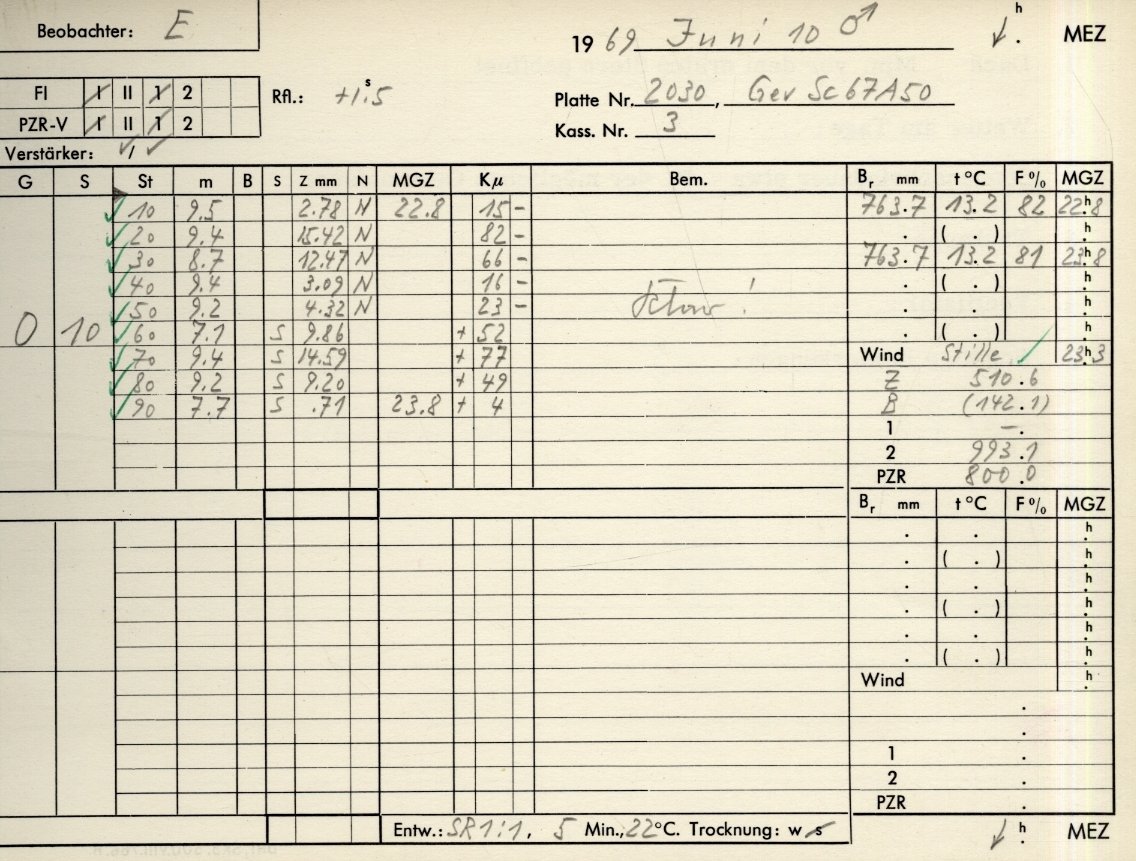 Beobachter: E
19 69 Juni 10 ♂ h . MEZ
FI I II 1 2 Rfl.: +1.5 s
Platte Nr. 2030, Gev Sc 67A50
PZR-V I II 1 2
Kass. Nr. 3
Verstärker: /
G S St m B S Z mm N MGZ Kμ Bem. Br mm t °C F % MGZ
10 9.5 2.78 N 22.8 15 - 763.7 13.2 82 22.8 h
20 9.4 15.42 N 82 - . ( . ) h
30 8.7 12.47 N 66 - 763.7 13.2 81 23.8 h
40 9.4 3.09 N 16 - . ( . ) h
50 9.2 4.32 N 23 - . . h
0 10 60 7.1 S 9.86 + 52 . ( . ) h
70 9.4 S 14.59 + 77 Wind Stille 23.3 h
80 9.2 S 9.20 + 49 Z 510.6
90 7.7 S .71 23.8 + 4 B (142.1)
1 -.
2 993.1
PZR 800.0
Br mm t °C F % MGZ
. . h
. ( . ) h
. . h
. ( . ) h
. . h
. ( . ) h
Wind h
.
.
1 .
2 .
PZR .
Entw.: SR1:1, 5 Min., 22°C. Trocknung: w s h . MEZ